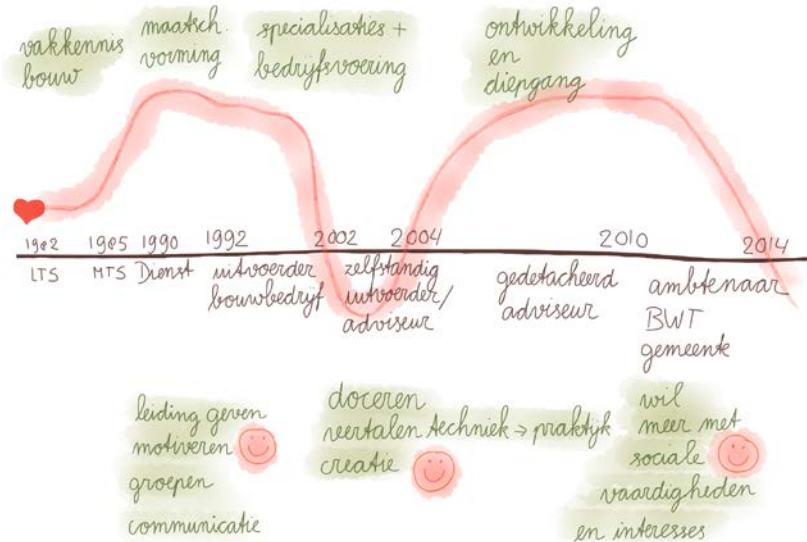 vakkennis
bouw
maatsch.
vorming
specialisaties +
bedrijfsvoering
ontwikkeling
en
diepgang
1982
1985
1990
1992
2002
2004
2010
2014
LTS
MTS
Dienst
uitvoerder
bouwbedrijf
zelfstandig
uitvoerder/
adviseur
gedetacheerd
adviseur
ambtenaar
BWT
gemeente
leiding geven
motiveren
groepen
communicatie
doceren
vertalen techniek → praktijk
creatie
wil
meer met
sociale
vaardigheden
en interesses